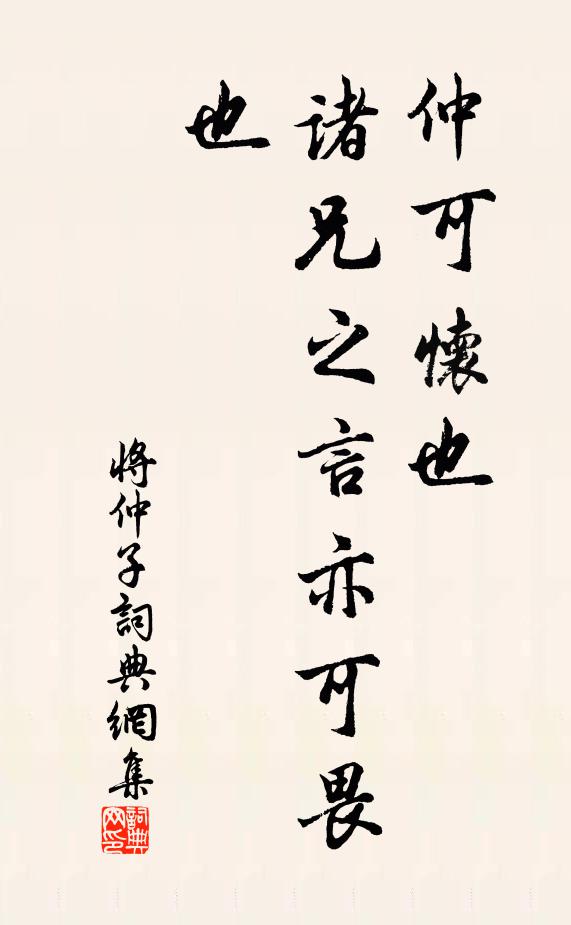 仲可懷也
諸兄之言亦可畏
也
將仲子詞典網集
詞典
网印